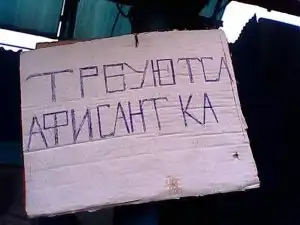 ТРЕУЮТСА
АФИСАНТ КА